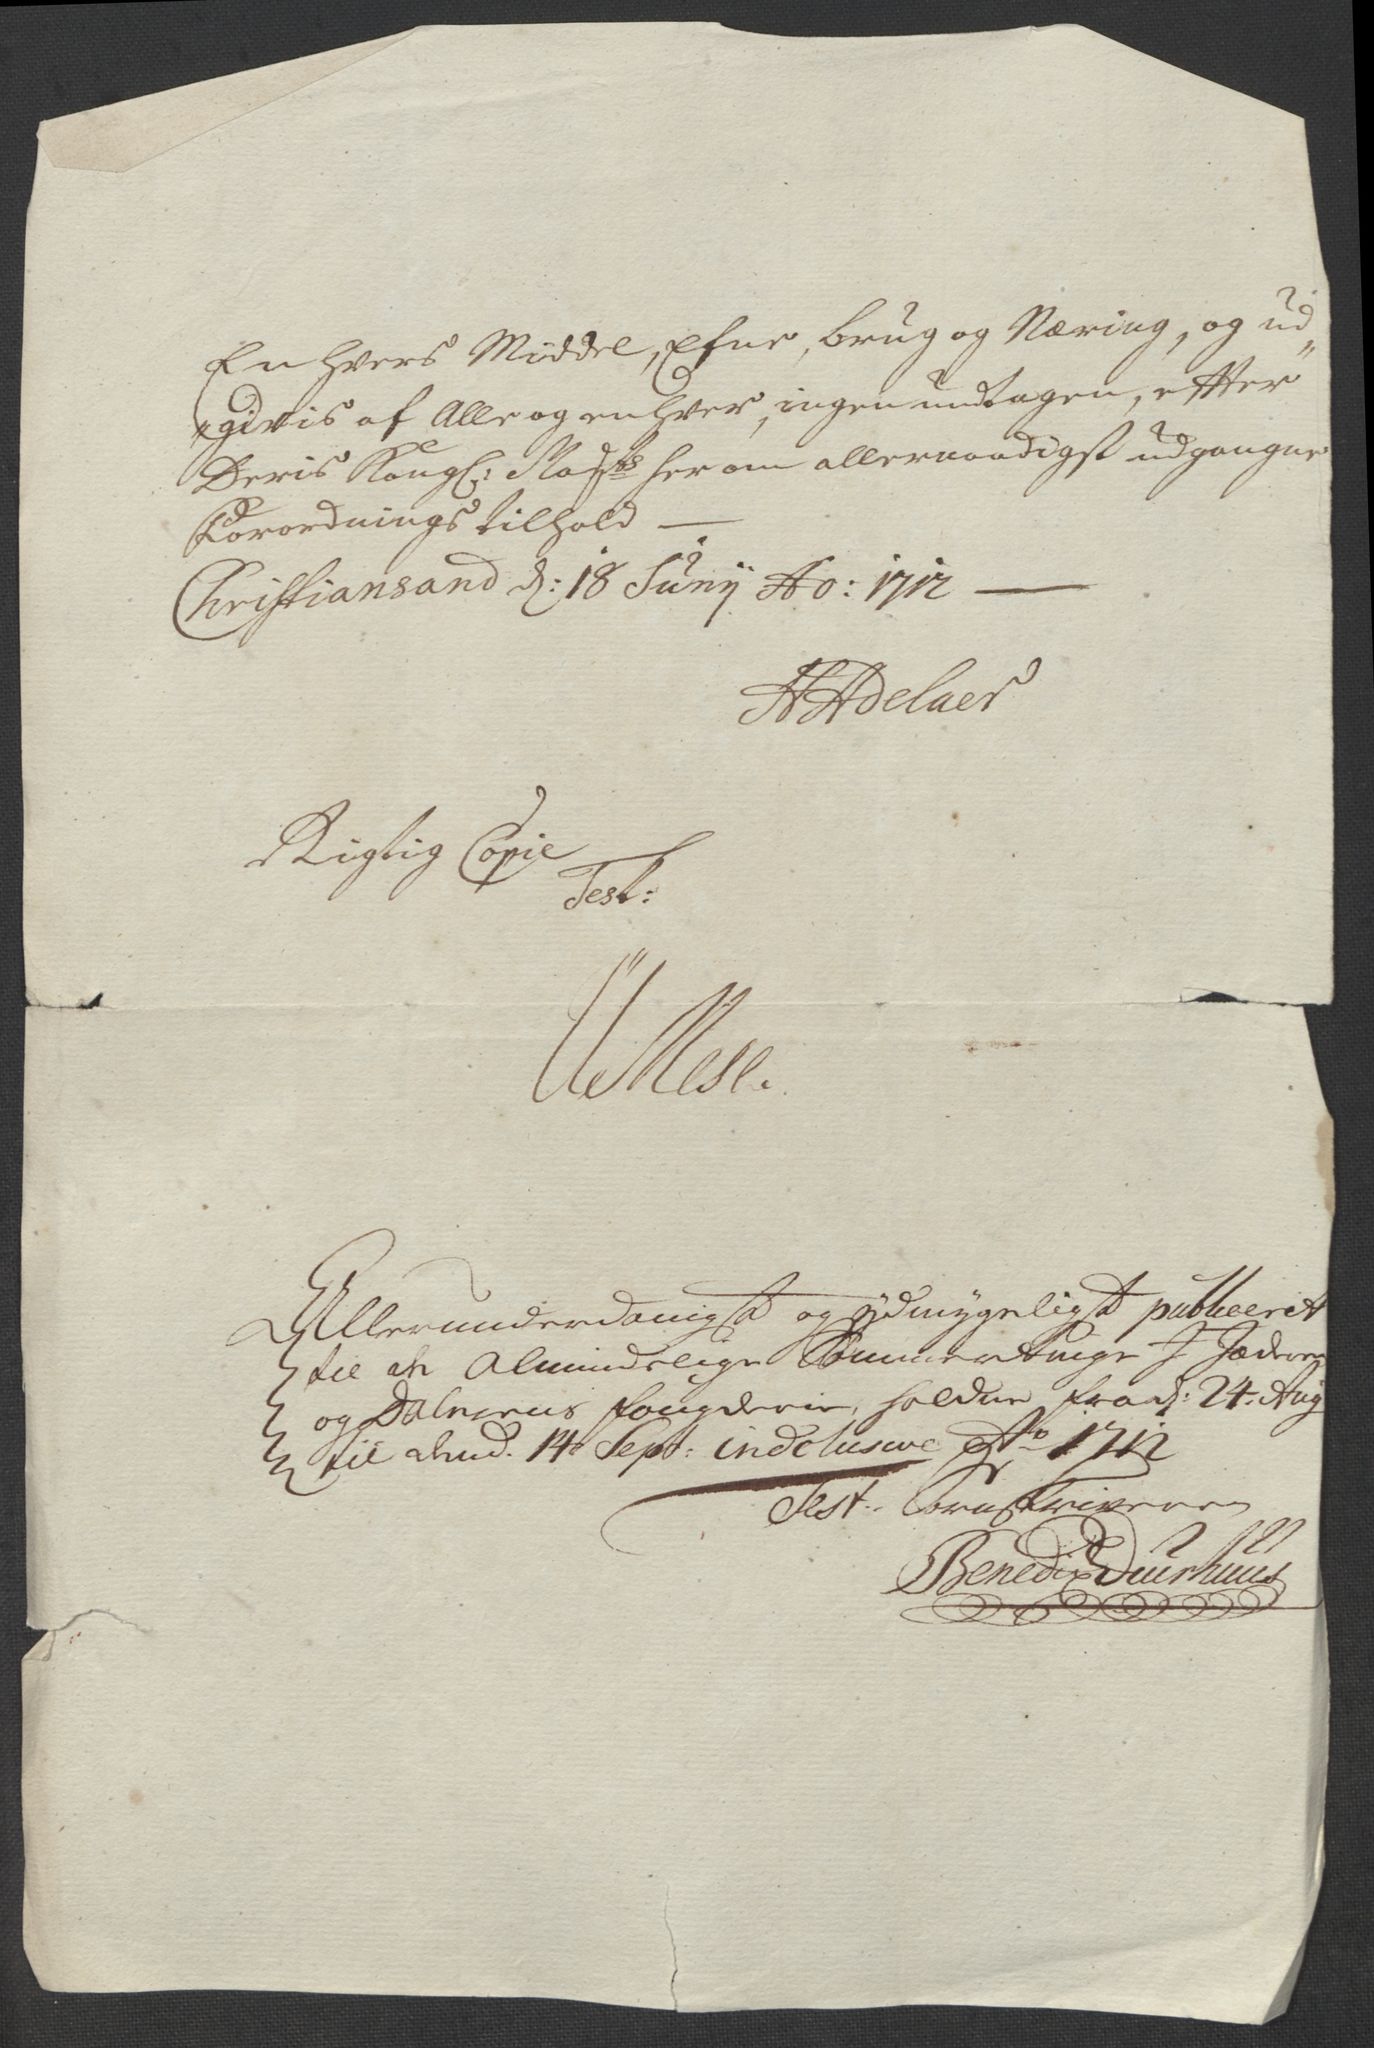 En hvers Middel, Efne, brug og Næring, og ud„
„givis af Alle og en hver, ingen undtagen, efter
Deris Kongl: Mayts her om allernaadigst udgangne
Forordnings tilhold —
Christiansand d: 18 Juny Ao: 1712 —
H Adelaer
Rigtig Copie
Test:
Allerunderdanigst og ydmygeligst publiceret
til de Almindelige Sommer Tinge I Jæderen
og Dalernes fougderie, holdne fra d: 24. Aug
til d. 14 Sept: inclusive Ao 1712
Test. Sorenskriveren
Benedix Duurhuus